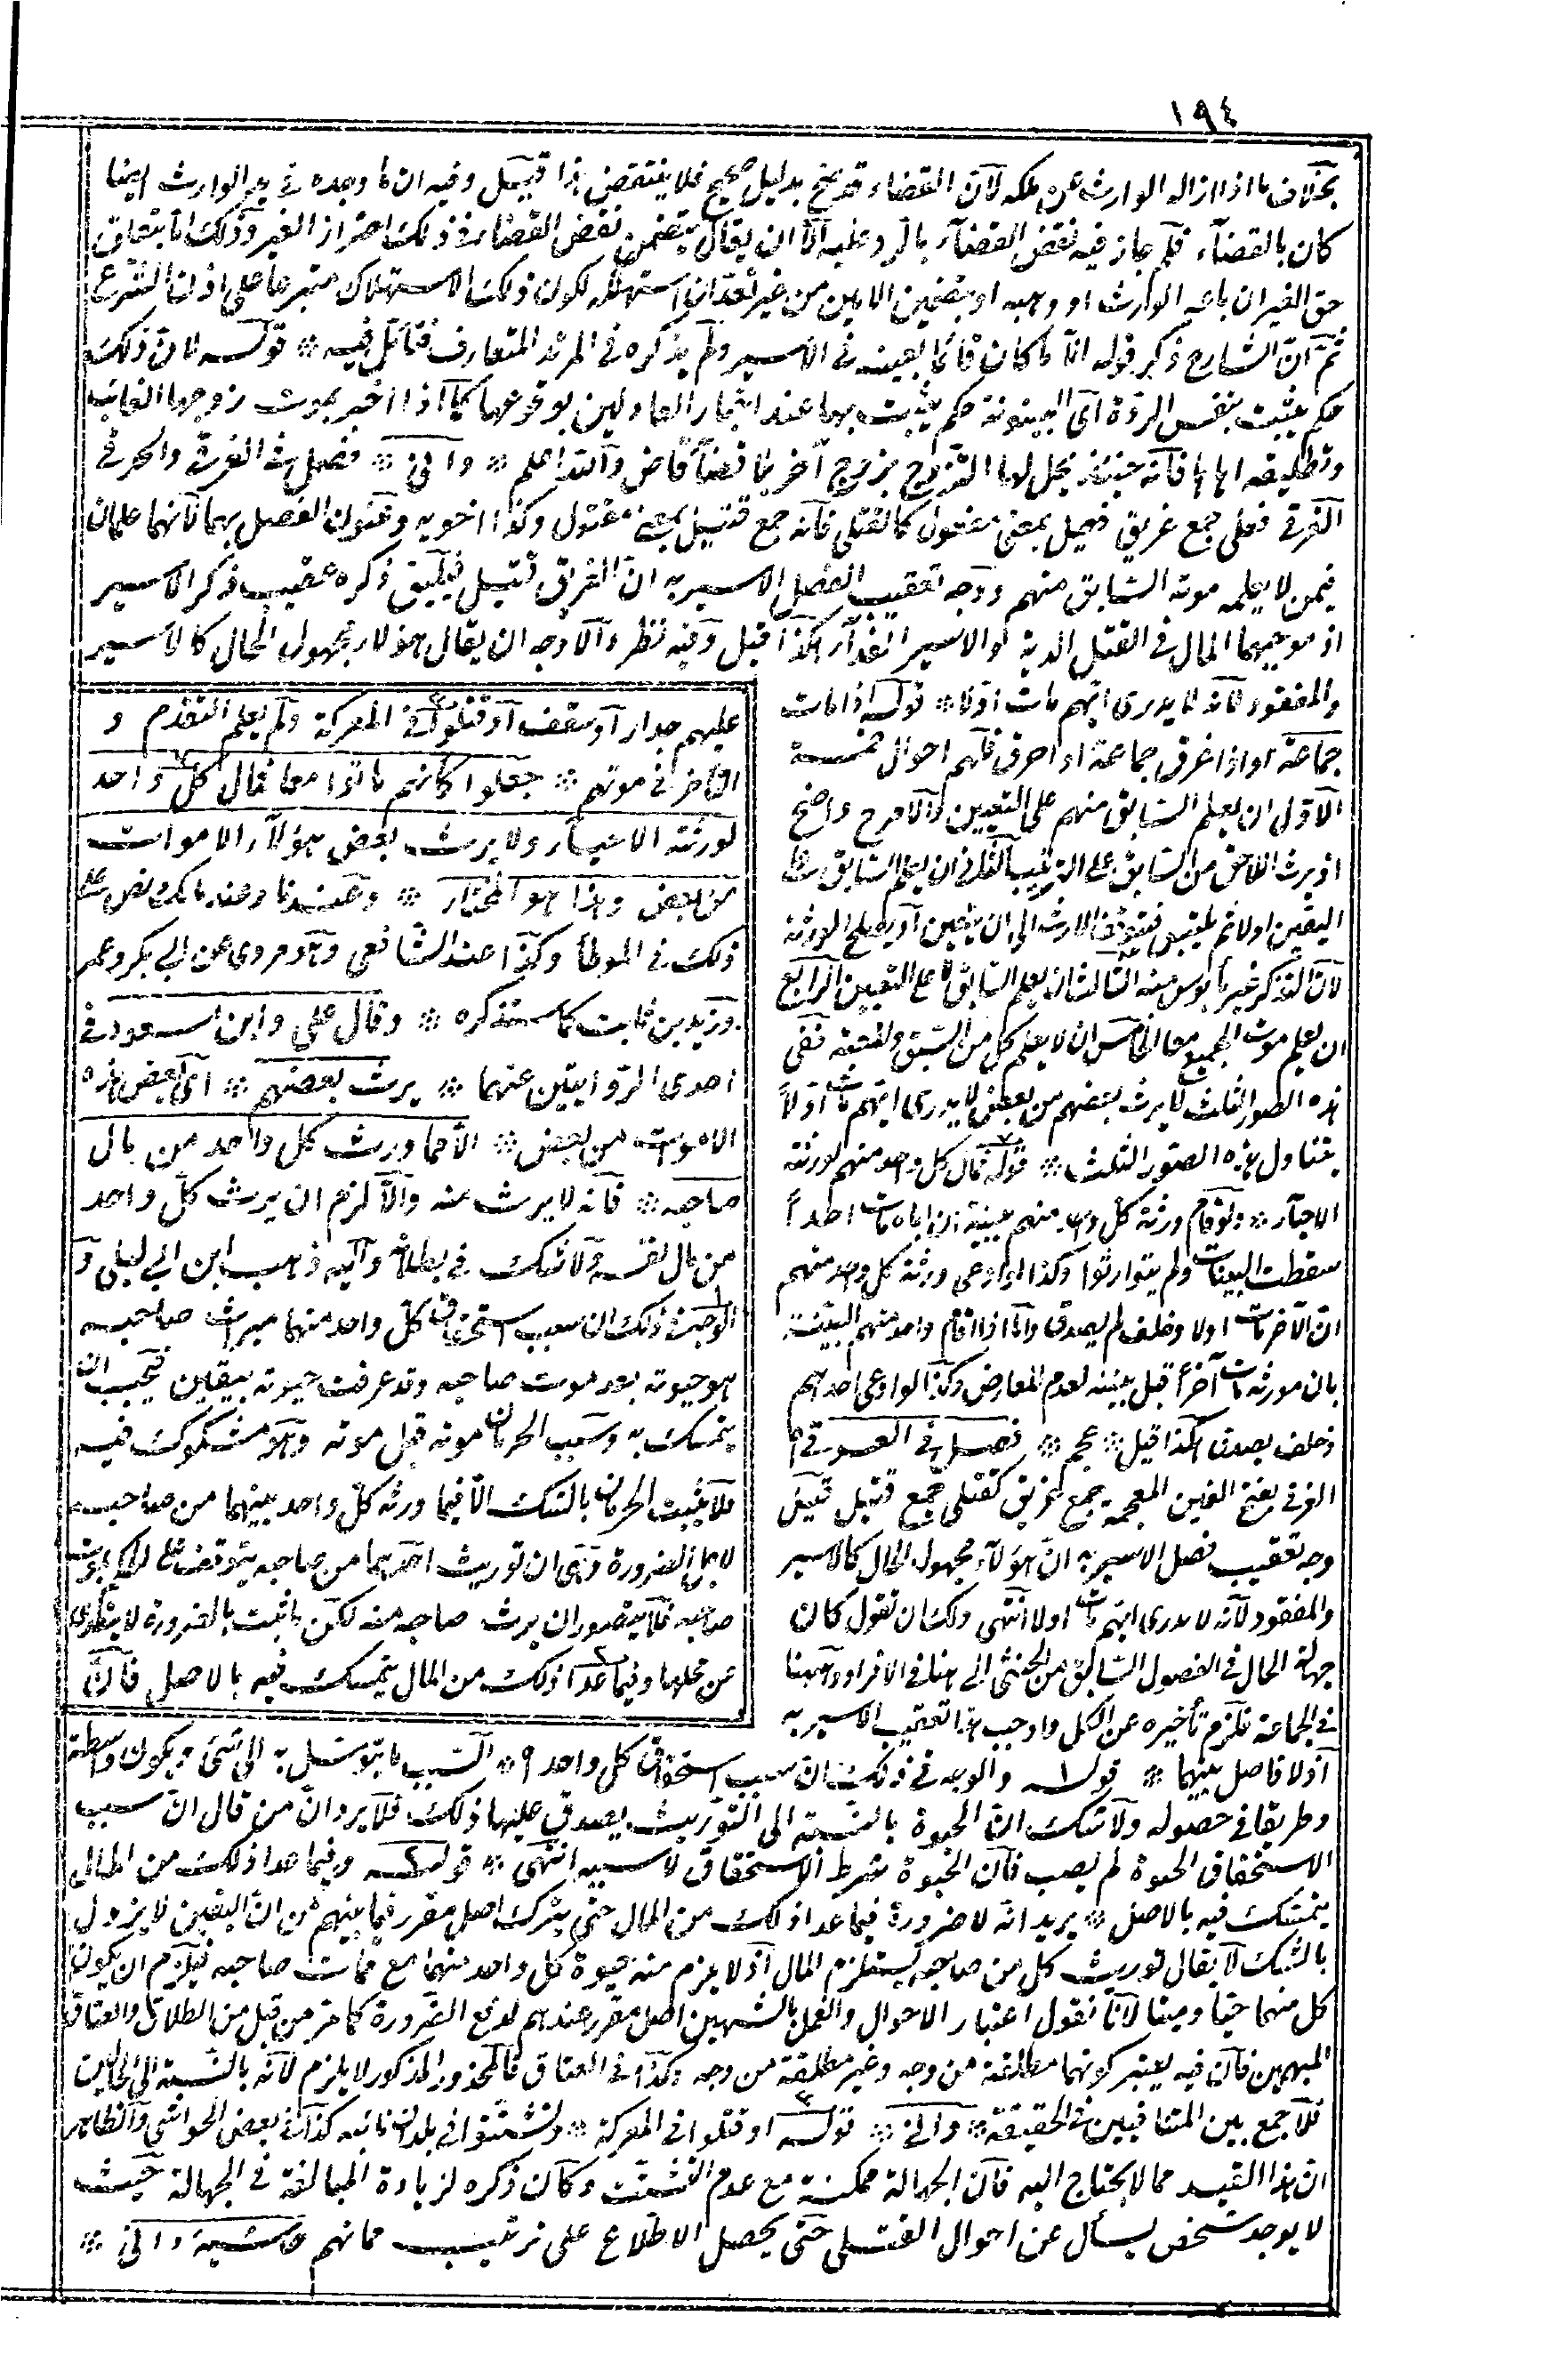 ١٩٤
بخلاف ما اذا ازاله الوارث عن ملكه لان القضاء قد صح بدليل صحيح فلا ينتقض هذا قيل وفيه ان ما وجده في يد الوارث ايضا
كان بالقضاء فلم جاز فيه نقض القضاء بالرد عليه الا ان يقال يتضمن نقض القضاء في ذلك اضرار الغير وذلك انما يتعلق
حق الغير ان باعه الوارث او وهبه او بتضمين الامين من غير تعد ان استهلكه لكون ذلك الاستهلاك مبنيا على اذن الشرع
ثم ان الشارح ذكر قوله الا ما كان قائما بعينه في الاسير ولم يذكره في المرتد المتعارف فتأمل فيه * قوله لان ذلك
حكم يثبت بنفس الردة اى البينونة حكم يثبت بها عند اخبار العادلين بوقوعها كما اذا اخبر بموت زوجها الغائب
وتطليقه اياها فانه حينئذ يحل لها التزوج بزوج آخر بلا قضاء قاض والله اعلم * وانى * فصل في الغرقى والحرقى
الغرقى فعلى جمع غريق فعيل بمعنى مفعول كالقتلى فانه جمع قتيل بمعنى مقتول وكذا اخويه وعنون الفصل بهما لانهما علمان
فيمن لا يعلم موته السابق منهم ووجه تعقيب الفصل الاسير به ان الغريق قتيل فيليق ذكره عقيب ذكر الاسير
اذ موجبهما المال في القتل الدية و الاسير الفداء هكذا قيل وفيه نظر والاوجه ان يقال هؤلاء مجهول الحال كالاسير
والمفقود لانه لا يدرى ايهم مات اولا * قوله اذا مات
جماعة او اذا غرق جماعة او احرق فلهم احوال خمسة
الاول ان يعلم السابق منهم على التعيين والامر ح واضح
اذ يرث اللاحق من السابق على الترتيب الثانى ان يعلم السابق على
اليقين اولا ثم يلتبس فيتوقف الارث الى ان يتبين او يصطلح الورثة
لان التذكر غير مأيوس منه الثالث ان يعلم السابق لا على التعيين الرابع
ان يعلم موت الجميع معا الخامس ان لا يعلم كل من السبق والمعية ففى
هذه الصور الثلث لا يرث بعضهم من بعض لا يدرى ايهم مات اولا
يتناول هذه الصور الثلث * قوله فمال كل واحد منهم لورثته
الاحياء * ولو قام ورثة كل واحد منهم ببينة ان اباه مات
سقطت البينات ولم يتوارثوا وكذا لو ادعى ورثة كل واحد منهم
ان الآخر مات اولا وحلف لم يصدق واما اذا اقام واحد منهم البينة
بان مورثه مات آخرا قبل بينته لعدم المعارض وكذا لو ادعى احدهم
وحلف يصدق هكذا قيل * عجم * فصل في الغرقى
الغرقى بفتح الغين المعجمة جمع غريق كقتلى جمع قتيل قيل
وجه تعقيب فصل الاسير به ان هؤلاء مجهول الحال كالاسير
والمفقود لانه لا يدرى ايهم مات اولا انتهى ولك ان تقول كان
جهالة الحال في الفصول السابق من الخنثى الى هنا في الافراد وههنا
في الجماعة فلزم تأخيره عن الكل واوجب هذا تعقيب الاسير به
عليهم جدار او سقف او قتلوا في المعركة ولم يعلم التقدم و
التأخر في موتهم * جعلوا كانهم ماتوا معا فمال كل واحد
لورثته الاحياء ولا يرث بعض هؤلاء الاموات
من بعض وهذا هو المختار * وعندنا وعند مالك نص على
ذلك في الموطأ وكذا عند الشافعى وهو مروى عن ابى بكر وعمر
وزيد بن ثابت كما ستذكره * وقال على وابن مسعود في
احدى الروايتين عنهما * يرث بعضهم * اى بعض هذه
الاموات من بعض * الا مما ورث كل واحد من مال
صاحبه * فانه لا يرث منه والا لزم ان يرث كل واحد
من مال نفسه ولا شك في بطلانه واليه ذهب ابن ابى ليلى و
الوجه في ذلك ان سبب استحقاق كل واحد منهما ميراث صاحبه
هو حيوته بعد موت صاحبه وقد عرفت حيوته بيقين فيجب ان
يتمسك به وسبب الحرمان موته قبل موته وهو مشكوك فيه
فلا يثبت الحرمان بالشك الا فيما ورثه كل واحد بينهما من صاحبه
لاجل الضرورة وهى ان توريث احدهما من صاحبه يتوقف على الحكم بموت
صاحبه فلا يتصور ان يرث صاحبه منه لكن ما ثبت بالضرورة لا يتعدى
عن محلها وفيما عدا ذلك من المال يتمسك فيه بالاصل فان
اذ لا فاصل بينهما * قوله والوجه في ذلك ان سبب استحقاق كل واحد اه السبب ما يتوسل به الى شئ ويكون واسطة
وطريقا في حصوله ولا شك ان الحيوة بالنسبة الى التوريث يصدق عليها ذلك فلا يرد ان من قال ان سبب
الاستحقاق الحيوة لم يصب فان الحيوة شرط الاستحقاق لا سببه انتهى * قوله وفيما عدا ذلك من المال
يتمسك فيه بالاصل * يريد انه لا ضرورة فيما عدا ذلك من المال حتى يترك اصل مقرر فيما بينهم من ان اليقين لا يزول
بالشك لا يقال توريث كل من صاحبه يستلزم المال اذ لا يلزم منه حيوة كل واحد منهما مع ممات صاحبه فيلزم ان يكون
كل منهما حيا وميتا لانا نقول اعتبار الاحوال والعمل بالشبهين اصل مقرر عندهم لدفع الضرورة كما مر من قبل من الطلاق والعتاق
المبهمين فان فيه يعتبر كونهما مطلقة من وجه وغير مطلقة من وجه وكذا في العتاق فالمحذور المذكور لا يلزم لانه بالنسبة الى الحالين
فلا جمع بين المتنافيين في الحقيقة * وانى * قوله او قتلوا في المعركة * وتشتتوا في بلدان نائيه كذا في بعض الحواشى والظاهر
ان هذا القيد مما لا يحتاج اليه فان الجهالة ممكنة مع عدم التشتت وكان ذكره لزيادة المبالغة في الجهالة حيث
لا يوجد شخص يسأل عن احوال القتلى حتى يحصل الاطلاع على ترتيب مماتهم حاشية وانى *